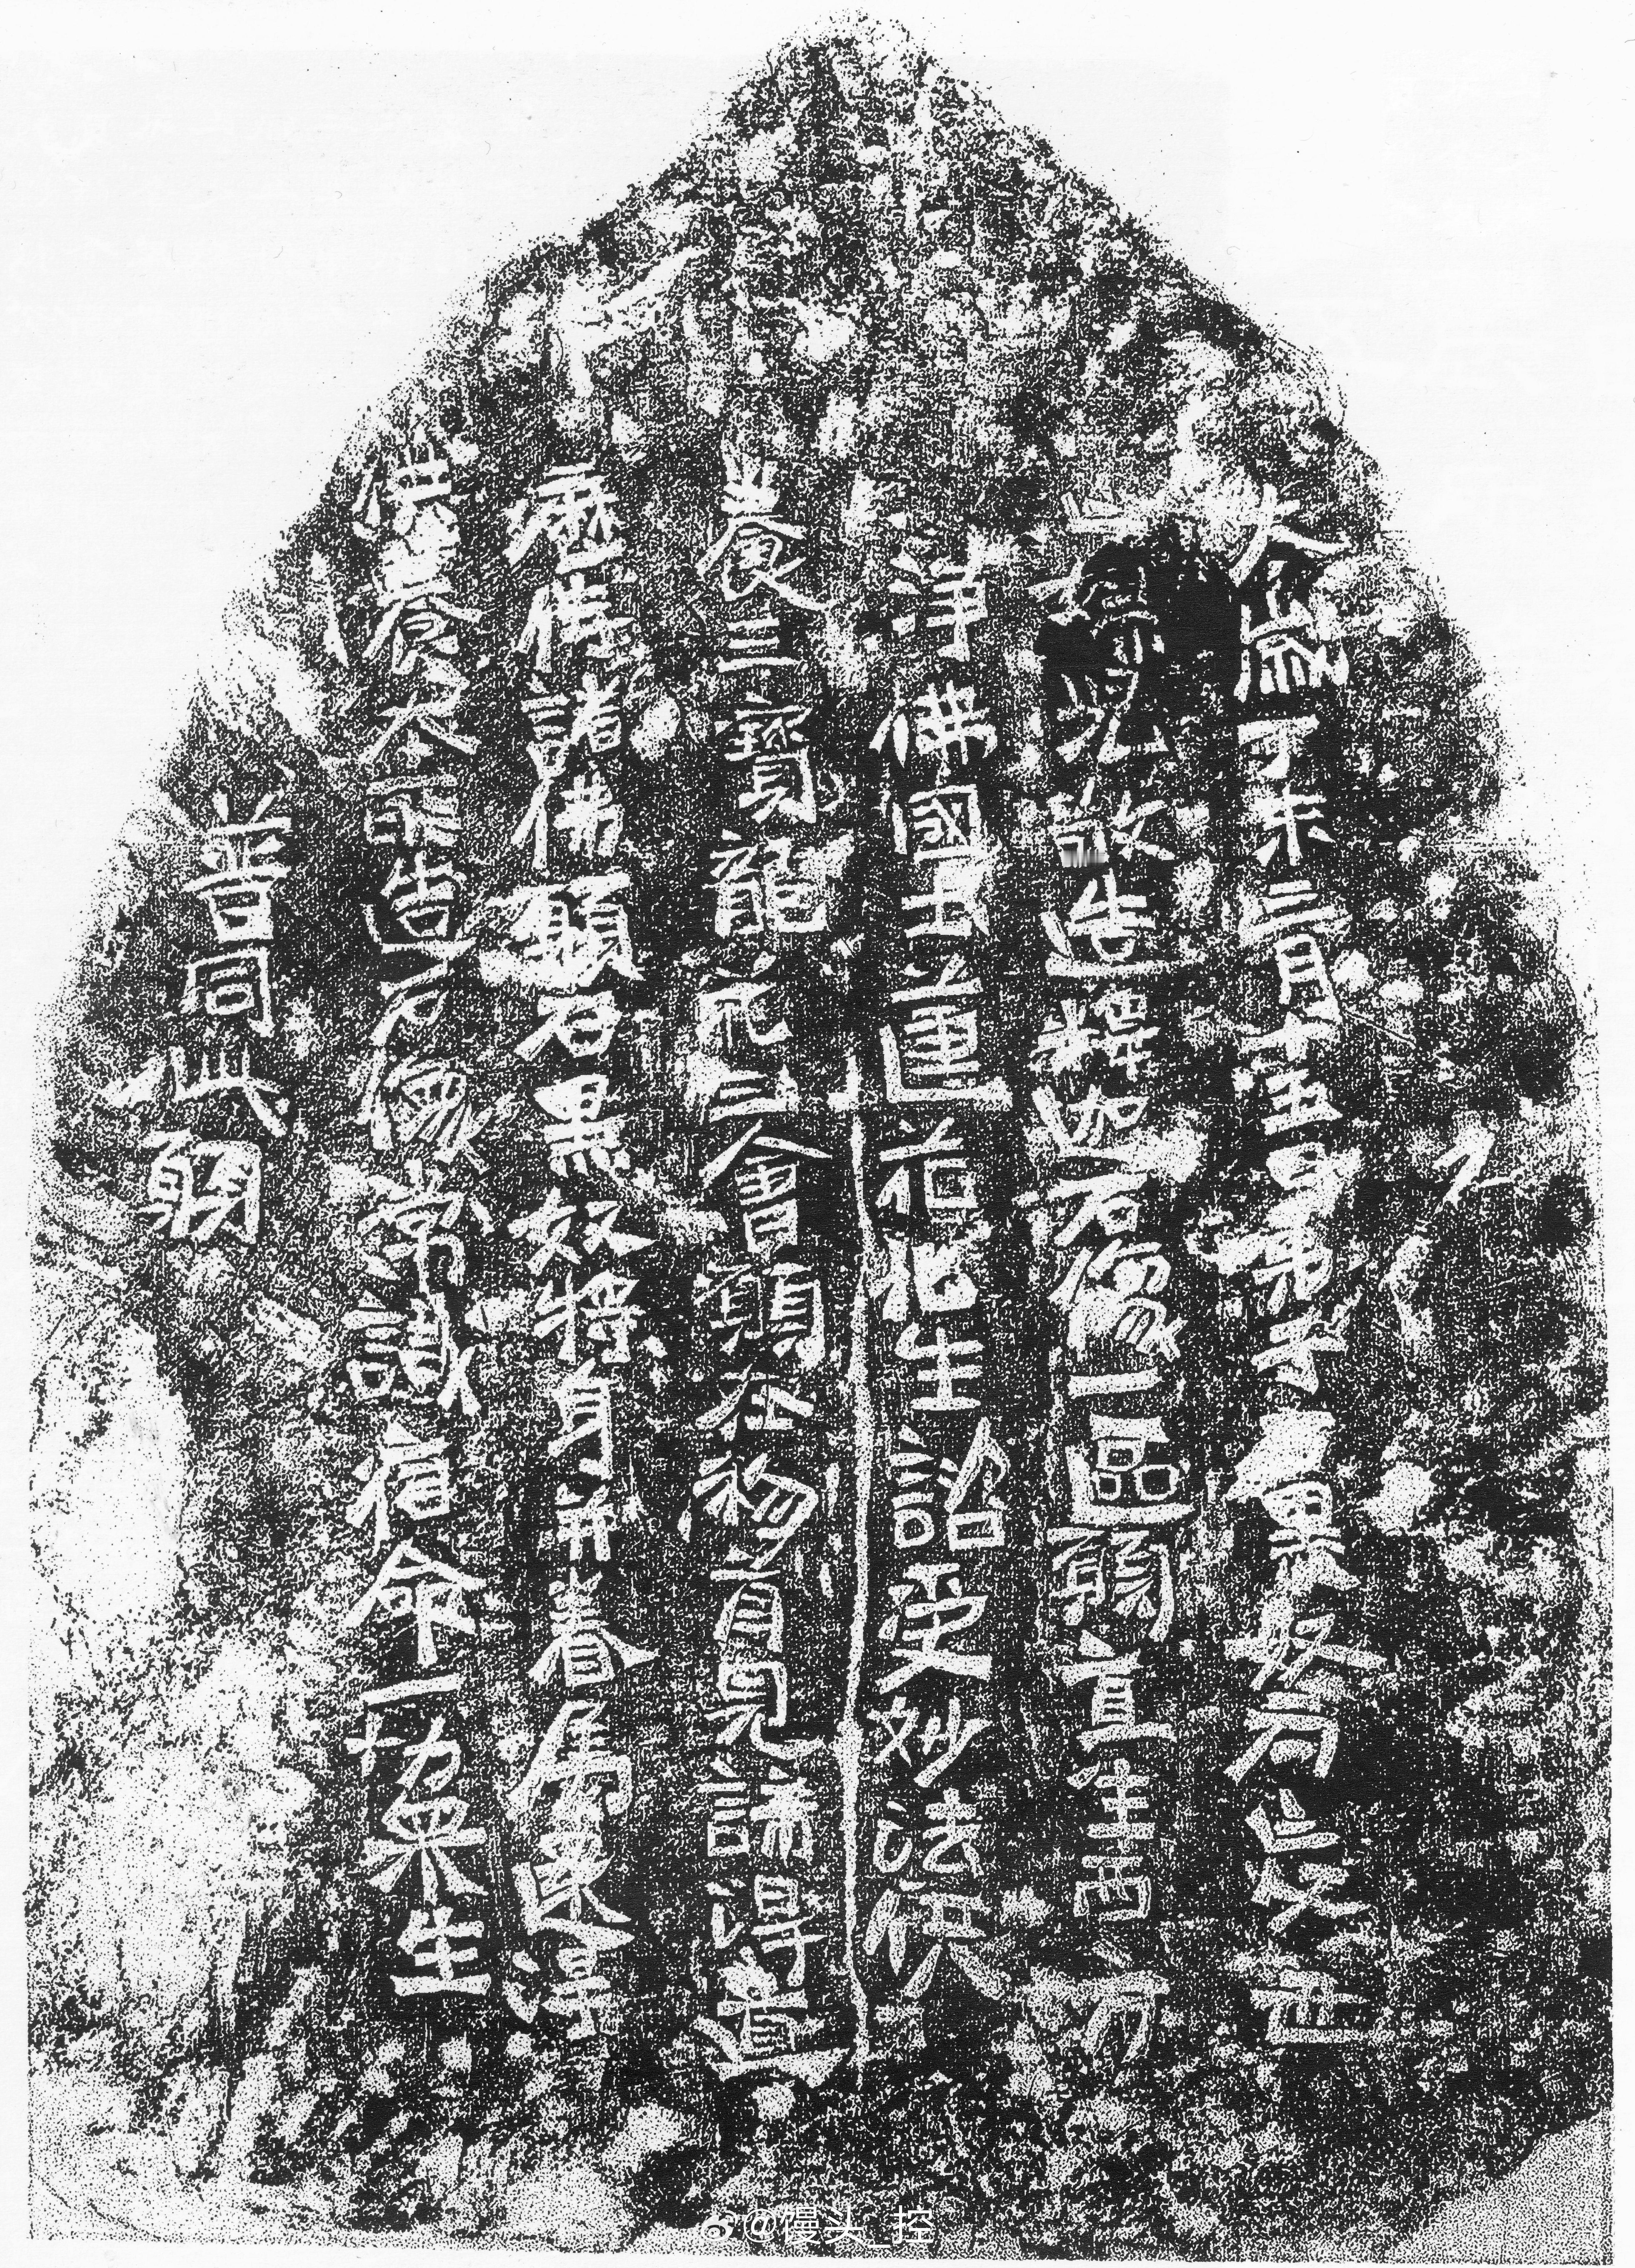 大歲丁未三月十五日弟子黑奴
兄敬造釋迦石像一區願直生西方
淨佛國土蓮花化生諮受妙法供
養三寶龍花三會願在初首見諸得道
歷侍諸佛願石黑奴將身并眷屬速得
供養本所造石像常識宿命一切衆生
普同此願
@馒头_控